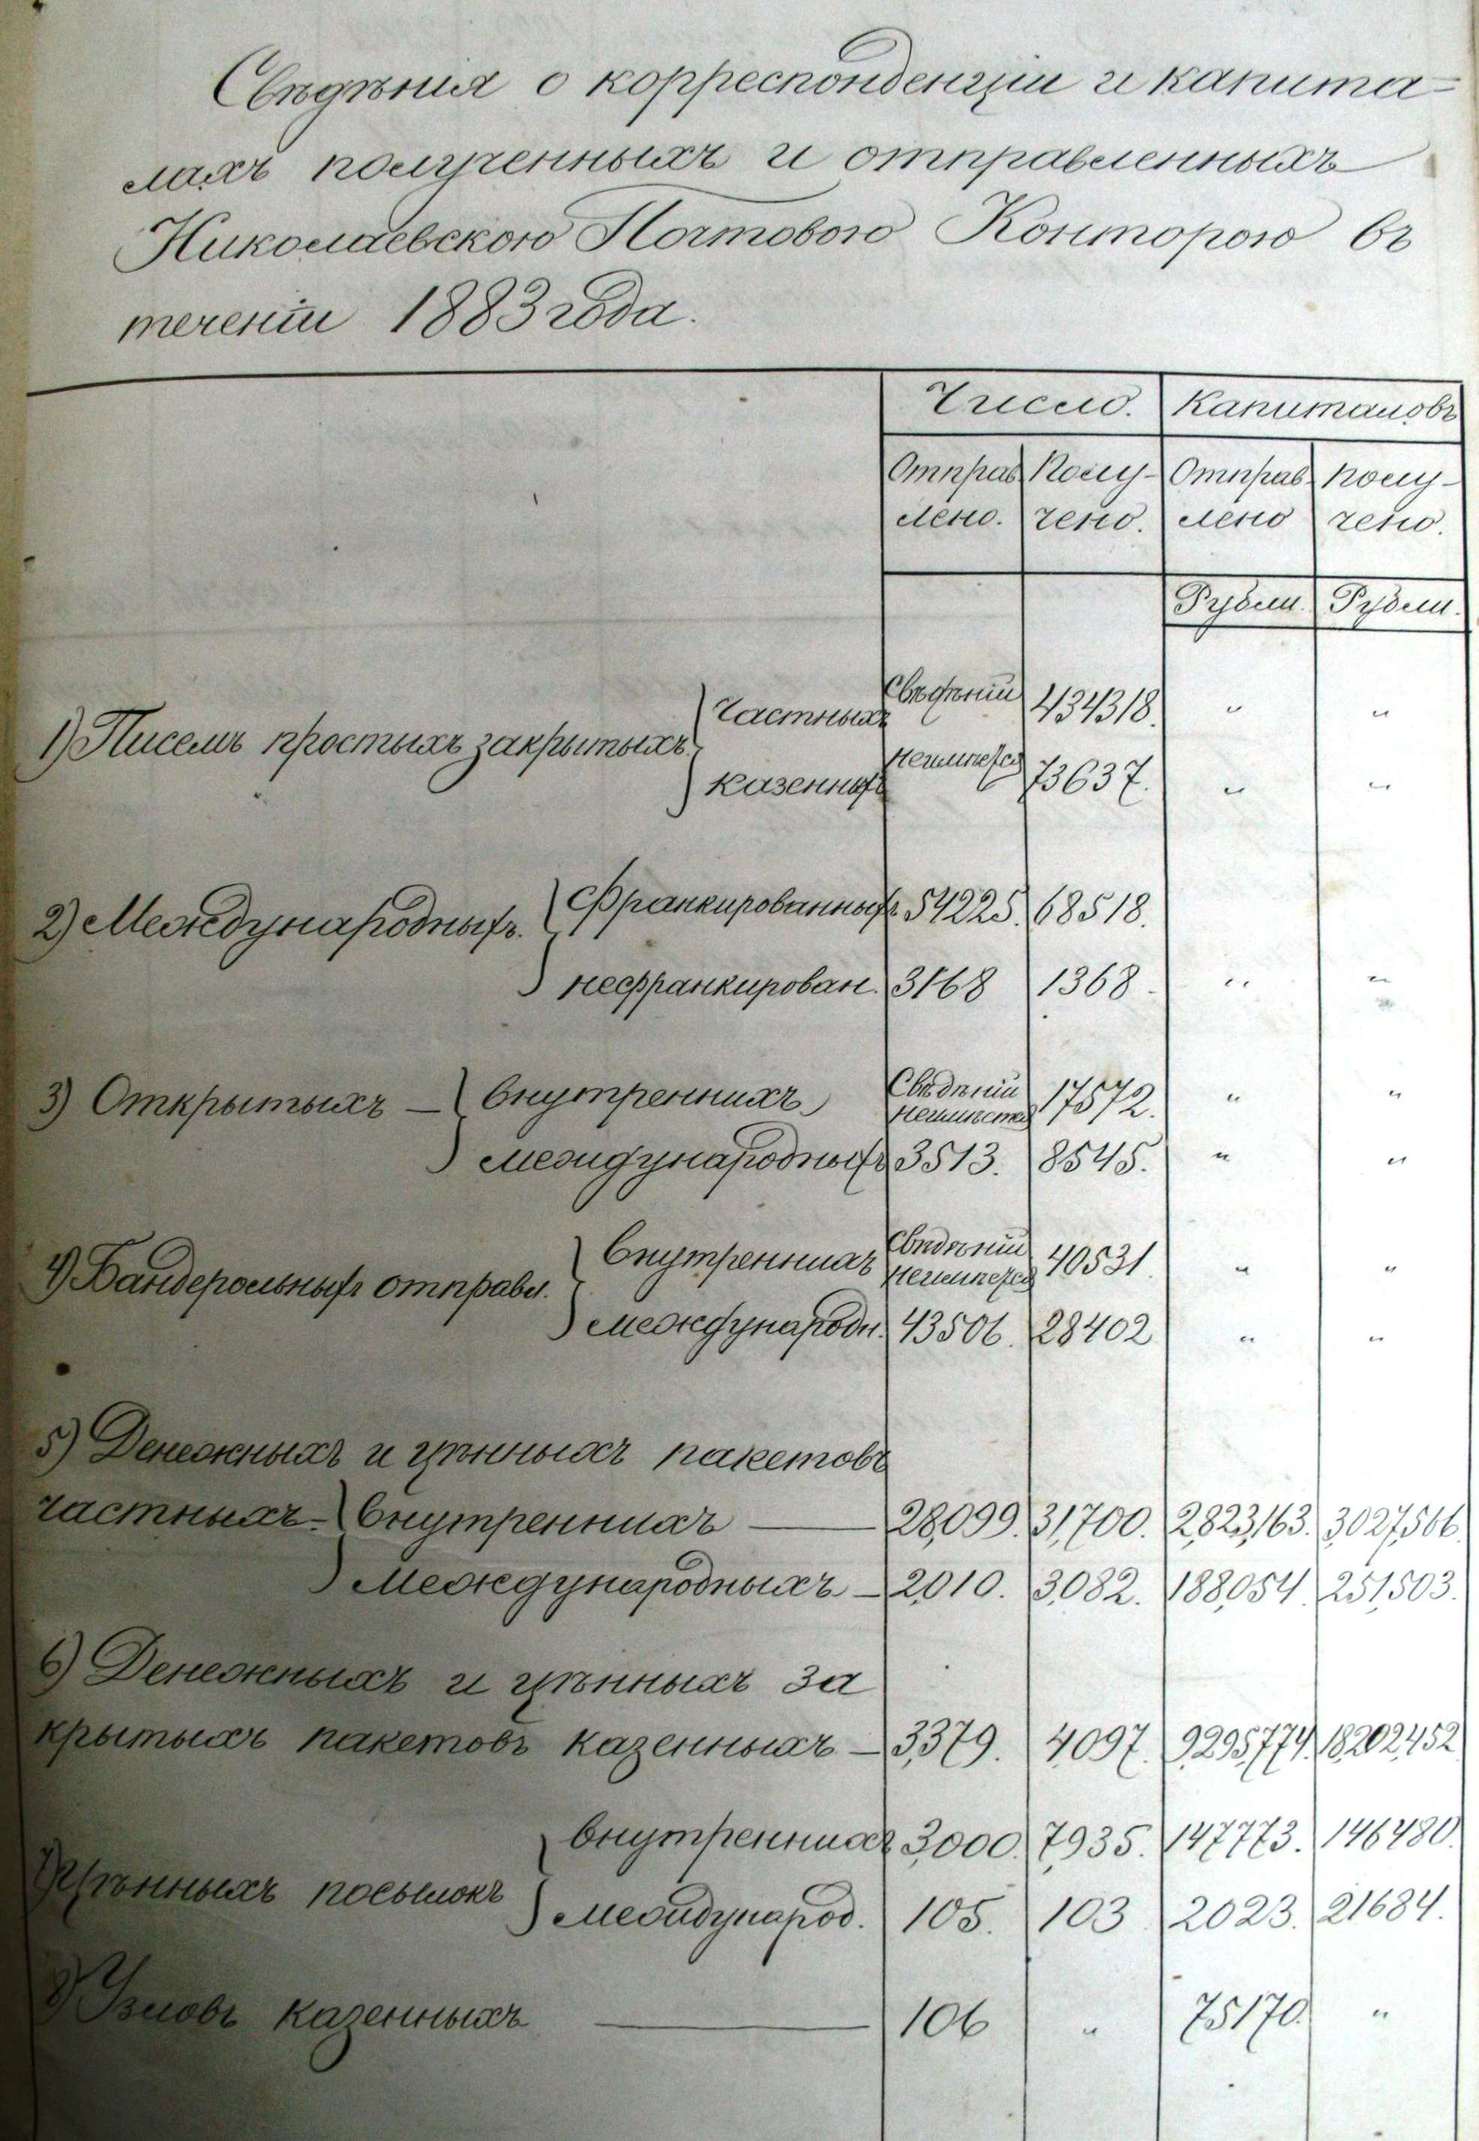 Свѣдѣнія о корреспонденціи и капита=
лахъ полученныхъ и отправленныхъ
Николаевскою Почтовою Конторою въ
теченіи 1883 года.
Число. Капиталовъ
Отправ- Полу- Отправ- полу-
лено. чено. лено чено.
Рубли. Рубли.
1) Писемъ простыхъ закрытыхъ { Частныхъ Свѣдѣній 434318. „ „
казенныхъ неимѣется 73637. „ „
2) Международныхъ. { Франкированныхъ 54225. 68518.
нефранкирован. 3168 1368. „ „
3) Открытыхъ — { внутреннихъ Свѣдѣній неимѣется 17572. „ „
международныхъ 3513. 8545. „ „
4) Бандерольныхъ отправл. { внутреннихъ Свѣдѣній неимѣется 40531 „ „
международн. 43506. 28402 „ „
5) Денежныхъ и цѣнныхъ пакетовъ
частныхъ — { внутреннихъ — 28,099. 31,700. 2,823,163. 3,027,566.
Международныхъ — 2,010. 3,082. 188,054. 251,503.
6) Денежныхъ и цѣнныхъ за
крытыхъ пакетовъ казенныхъ — 3,379. 4,097. 9,295,774. 18,202,452
7) Цѣнныхъ посылокъ { внутреннихъ 3,000. 7,935. 147773. 146480.
международ. 105. 103 2023. 21684.
8) Узловъ казенныхъ — 106 „ 75170. „